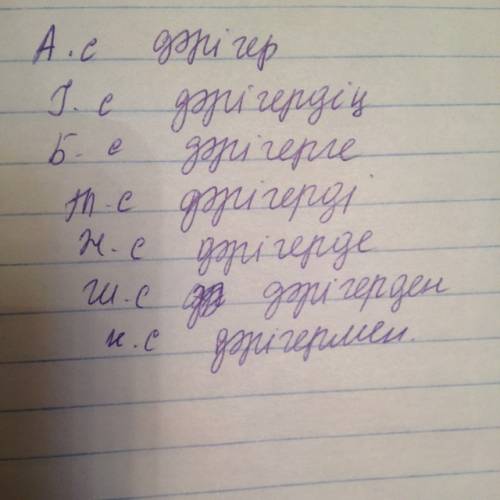 А.с дәрігер
І.с дәрігердің
Б.с дәрігерге
Т.с дәрігерді
Ж.с дәрігерде
Ш.с дәрігерден
К.с дәрігермен.